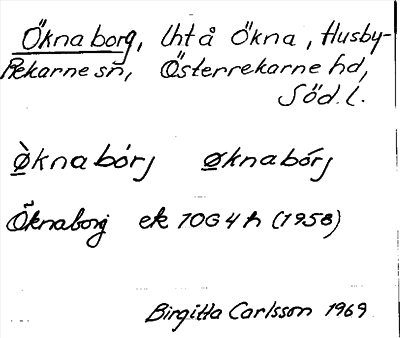 Ökna borg, Uht å Ökna, Husby-
Rekarne sn, Österrekarne hd,
Söd. l.
ø̀knabòrj øknabórj
Öknaborg ek 10G4h (1958)
Birgitta Carlsson 1969